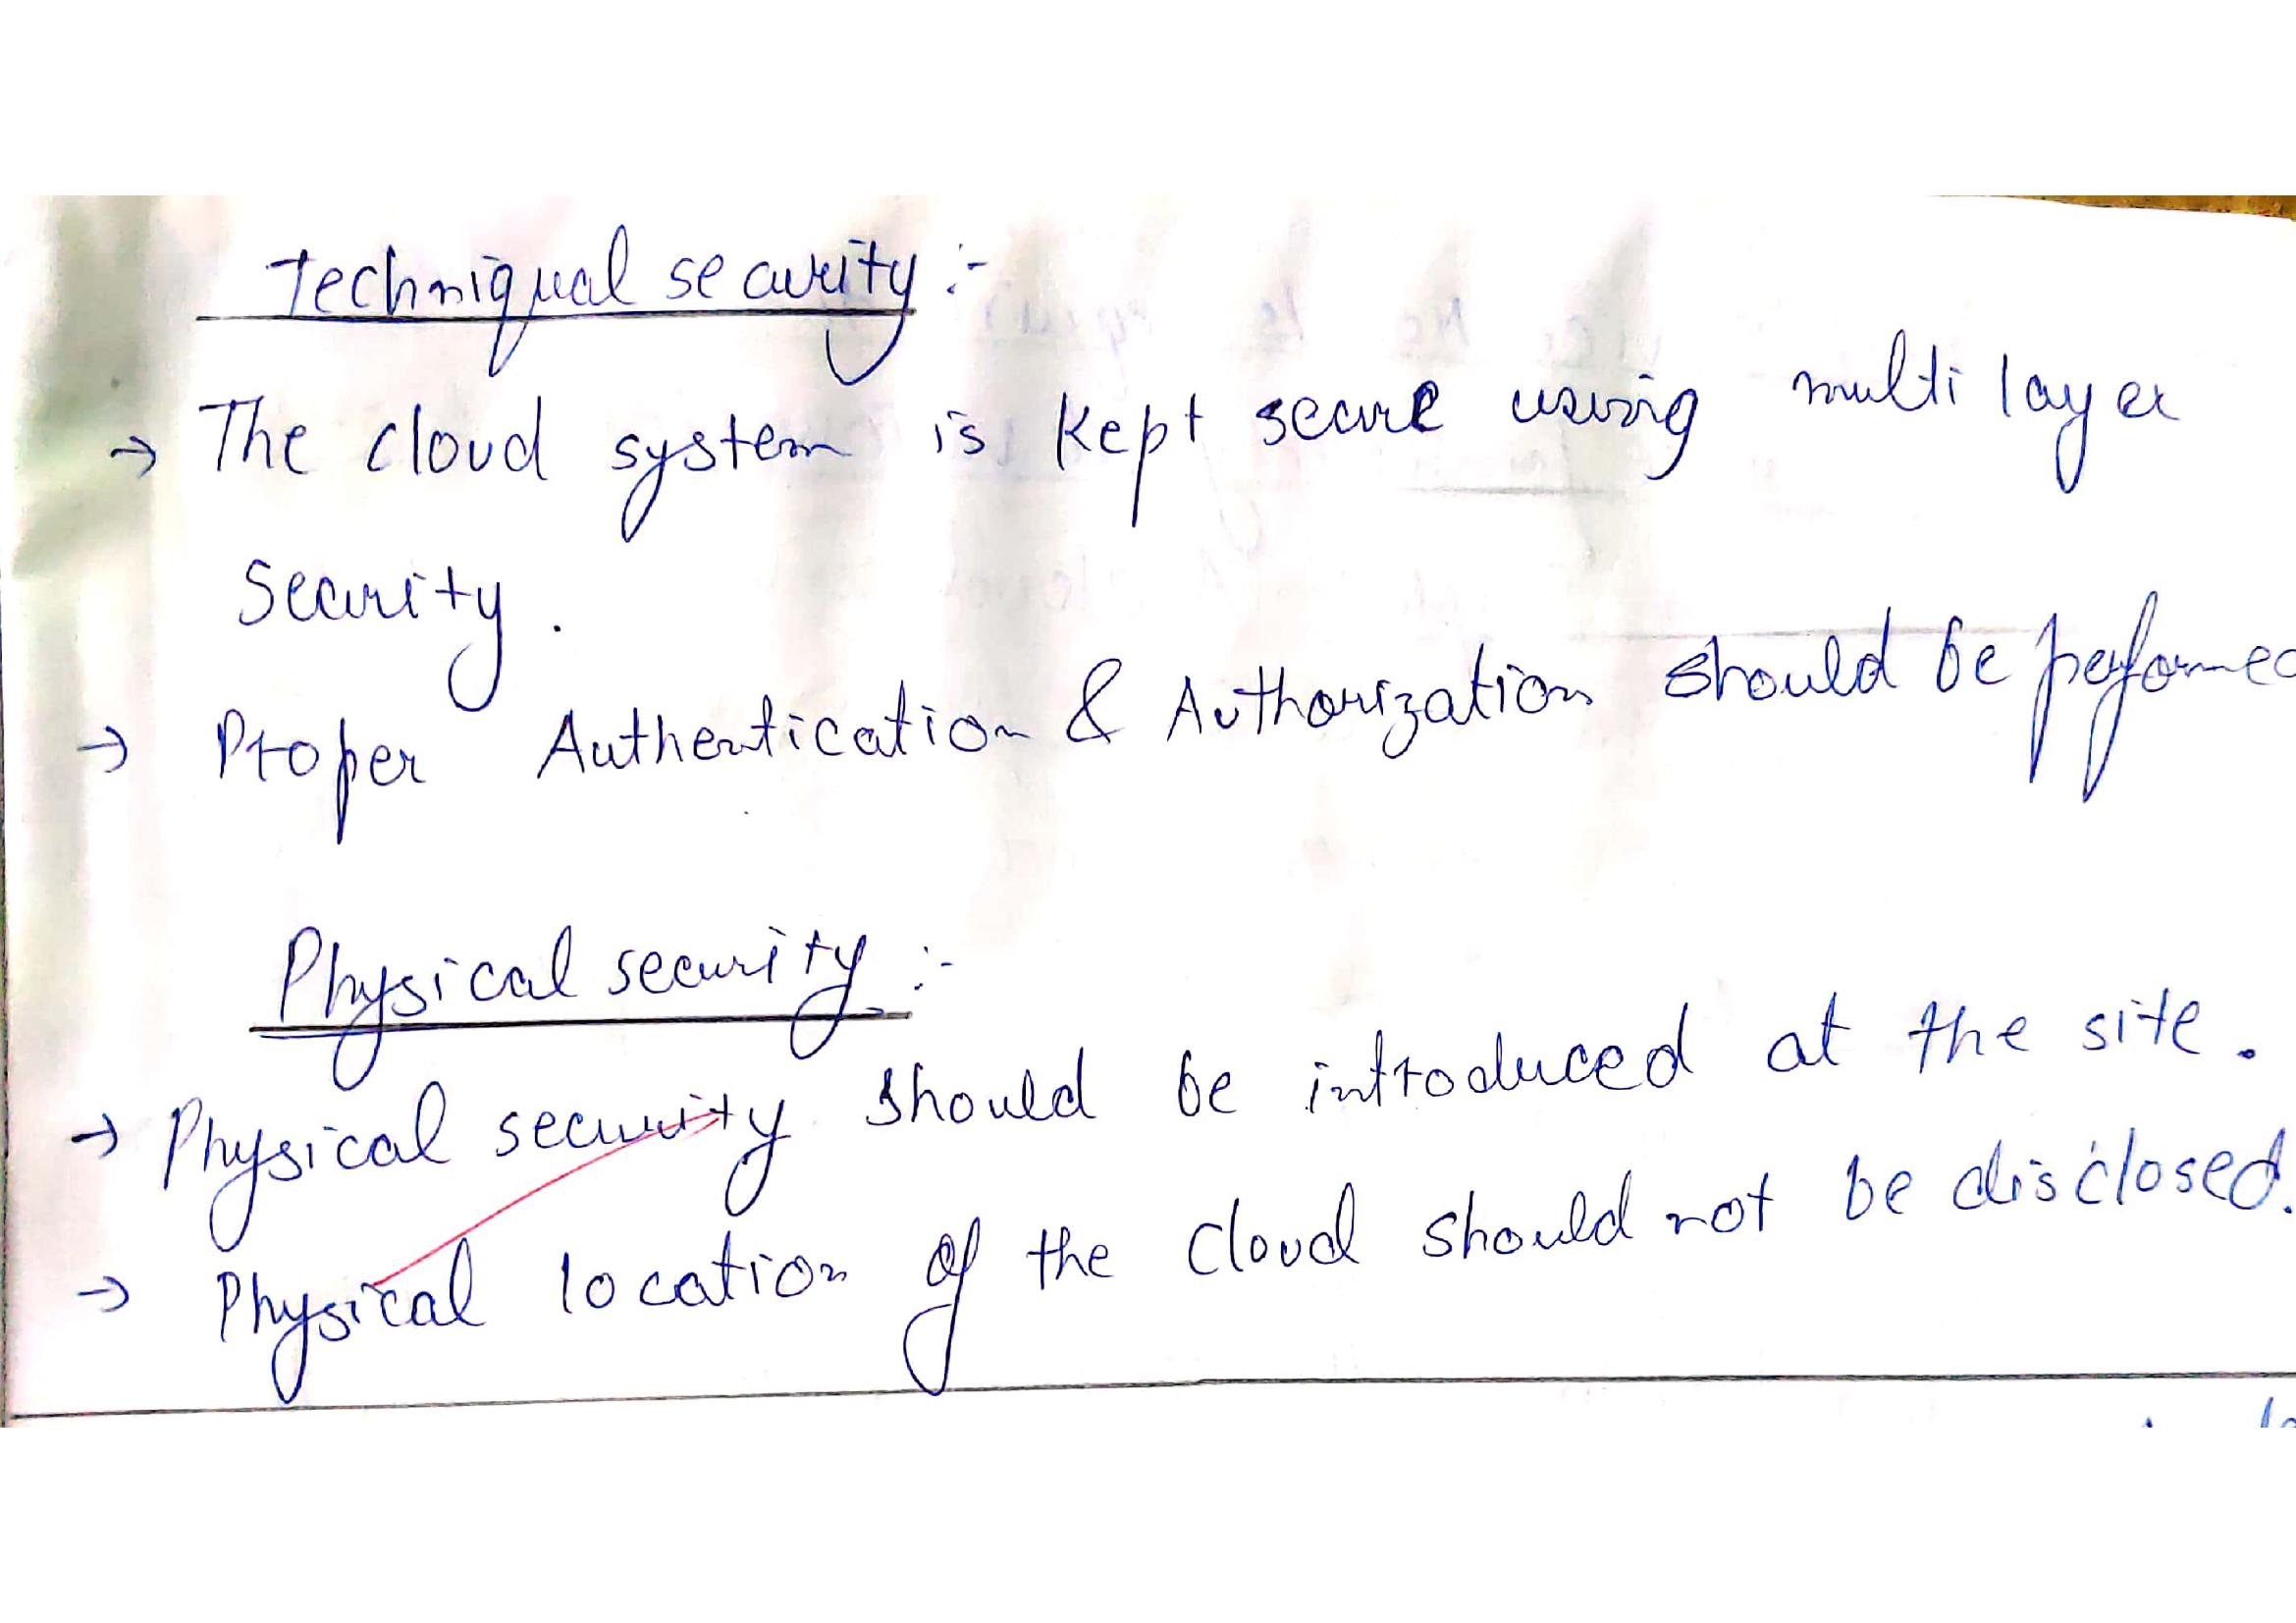 Techniqual security :-
→ The cloud system is kept secure using multi layer
security.
→ Proper Authentication & Authorization should be performed
Physical security :-
→ Physical security should be introduced at the site.
→ Physical location of the cloud should not be disclosed.